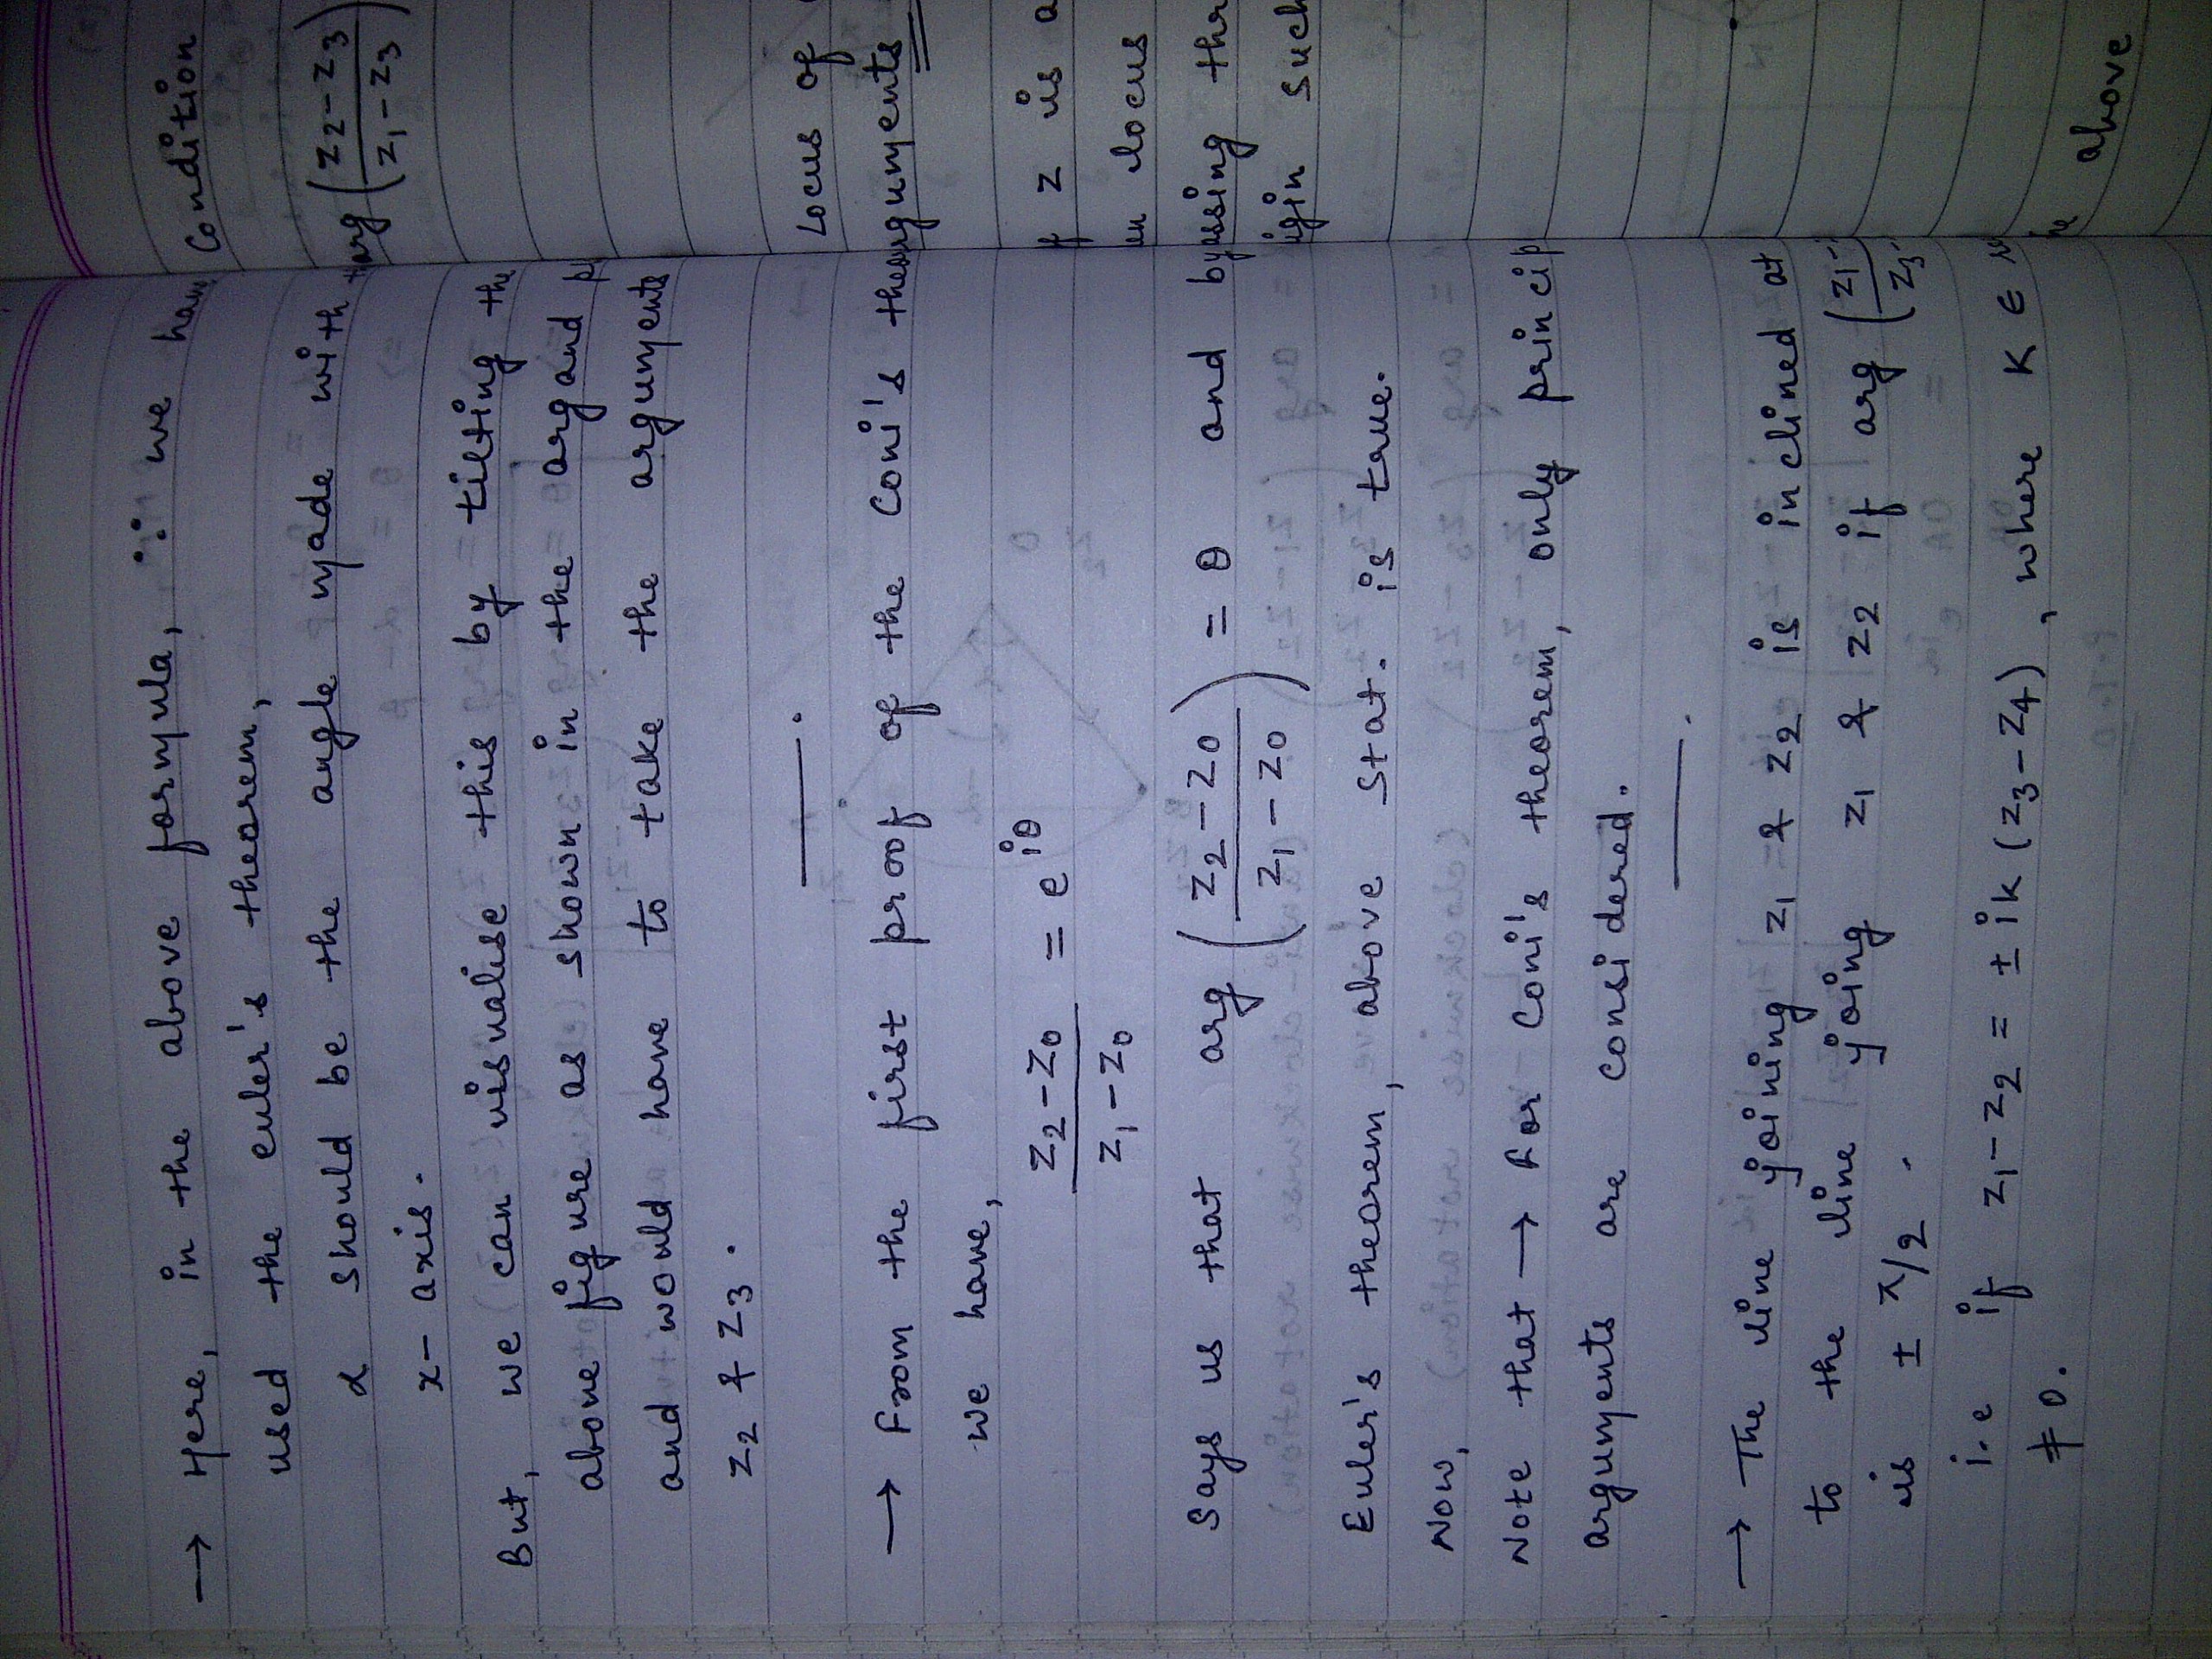 → Here, in the above formula, ∵ we have
used the euler's theorem,
α should be the angle made with
x- axis.
But, we can visualise this by tilting the
above figure as shown in the argand
and would have to take the arguments
z₂ & z₃.
From the first proof of the Coni's
we have,
(z₂-z₀)/(z₁-z₀) = e^(iθ)
Says us that arg ((z₂-z₀)/(z₁-z₀)) = θ and by
Euler's theorem, above stat. is true.
Now,
Note that → For Coni's theorem, only
arguments are considered.
→ The line joining z₁ & z₂ is inclined at
to the line joing z₁ & z₂ if arg (z₁-/z₃-
is ± π/2.
i.e if z₁-z₂ = ± ik (z₃-z₄), where K ∈
≠ 0.
Condition
arg ((z₂-z₃)/(z₁-z₃))
Locus of
arguments
z is a
locus
ssing thr
igin such
above